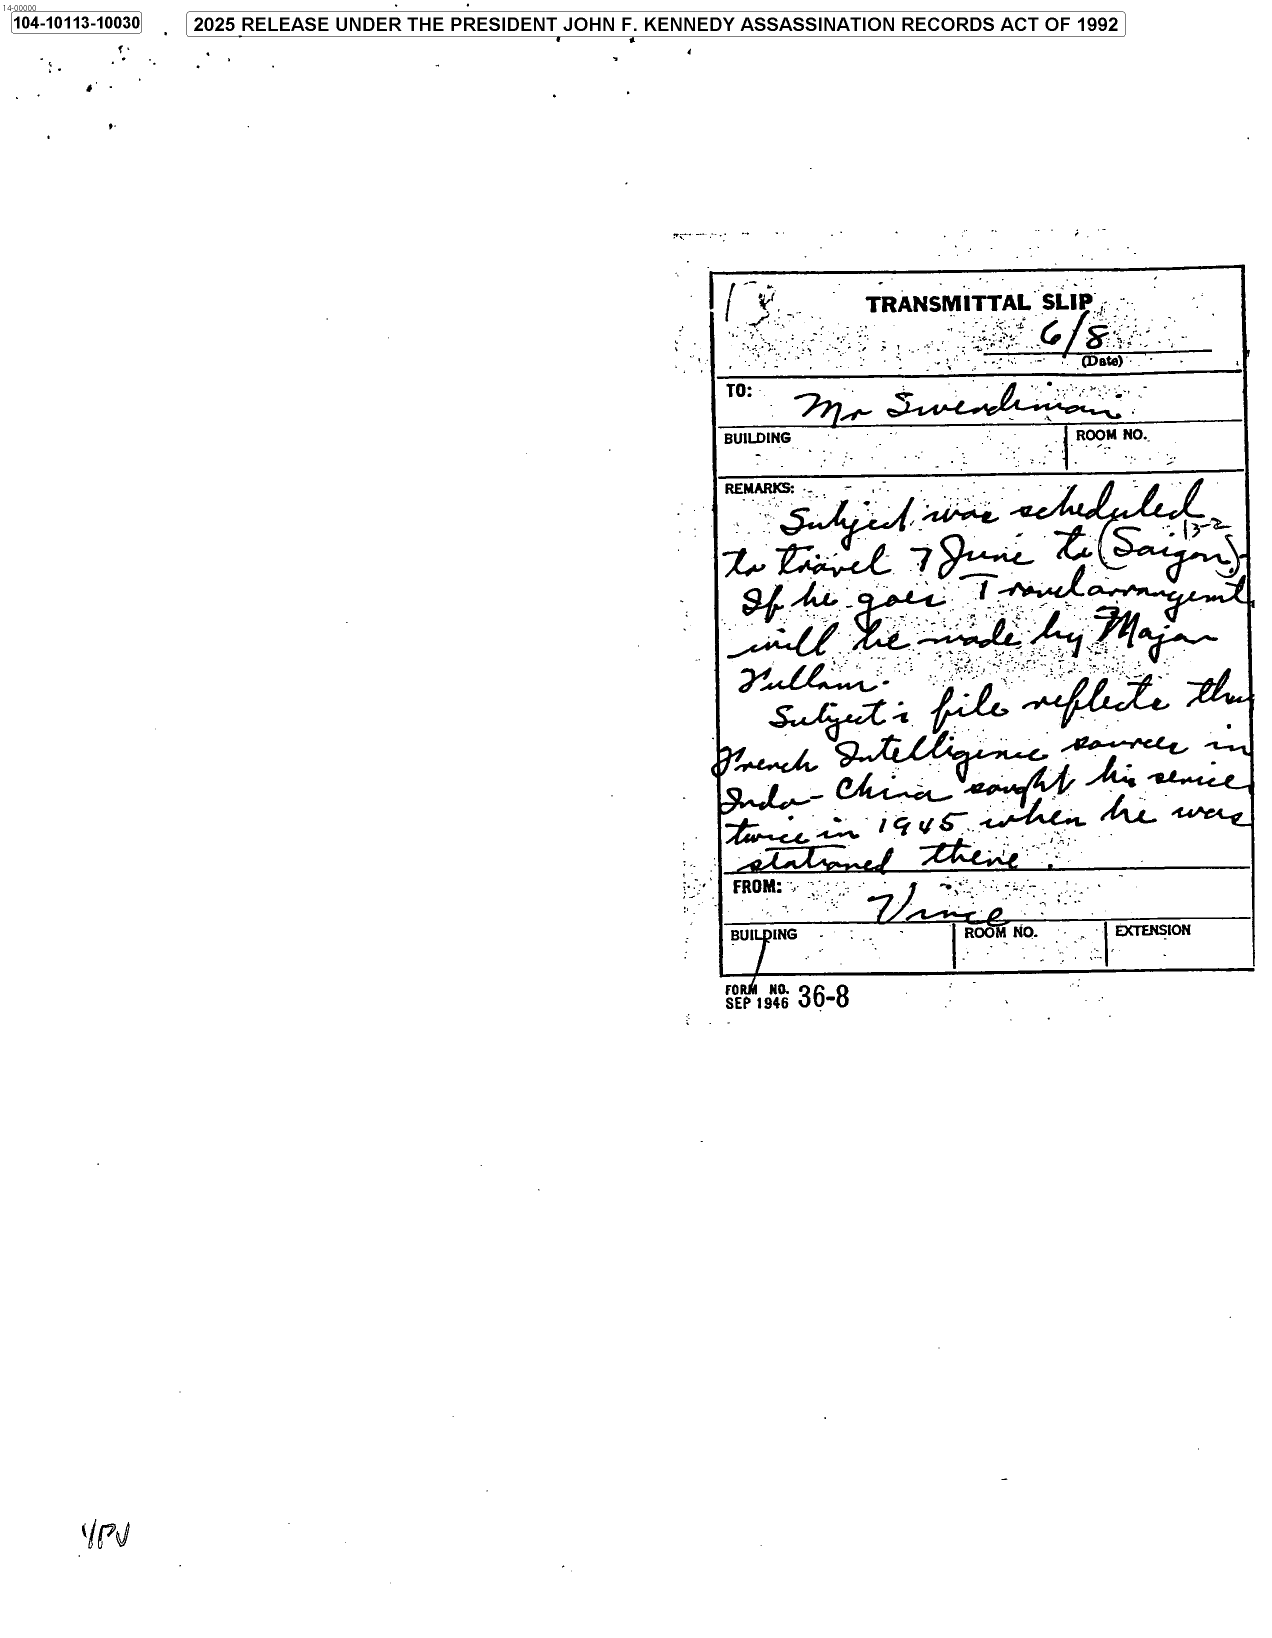 14-00000
104-10113-10030
2025 RELEASE UNDER THE PRESIDENT JOHN F. KENNEDY ASSASSINATION RECORDS ACT OF 1992
TRANSMITTAL SLIP
6/8
(Date)
TO: Mr Swendiman
BUILDING ROOM NO.
REMARKS:
Subject was scheduled
13-2
to travel 7 June to (Saigon).
If he goes Travel arrangemt
will be made by Major
Subject's file reflects tha
French Intelligence sources in
Indo-China sought his service
twice in 1945 when he was
stationed there.
FROM: Vince
BUILDING ROOM NO. EXTENSION
FORM NO. 36-8
SEP 1946